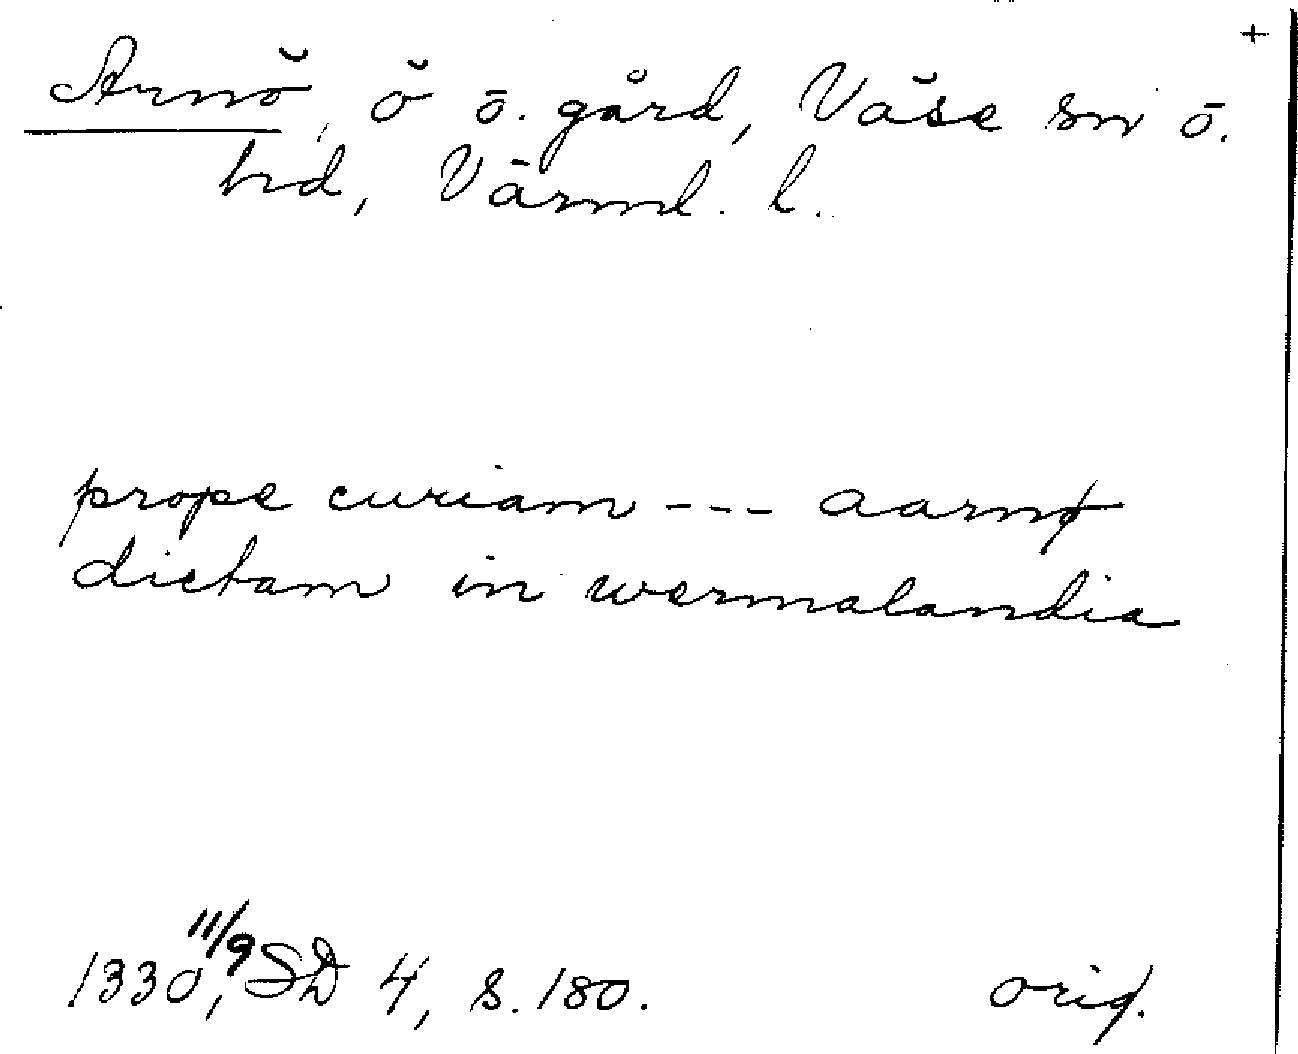 +
Arnö, ö o. gård, Väse sn o.
hd, Värml. l.
prope curiam --- aarnø
dictam in wermalandia
1330 11/9, SD 4, s. 180. orig.